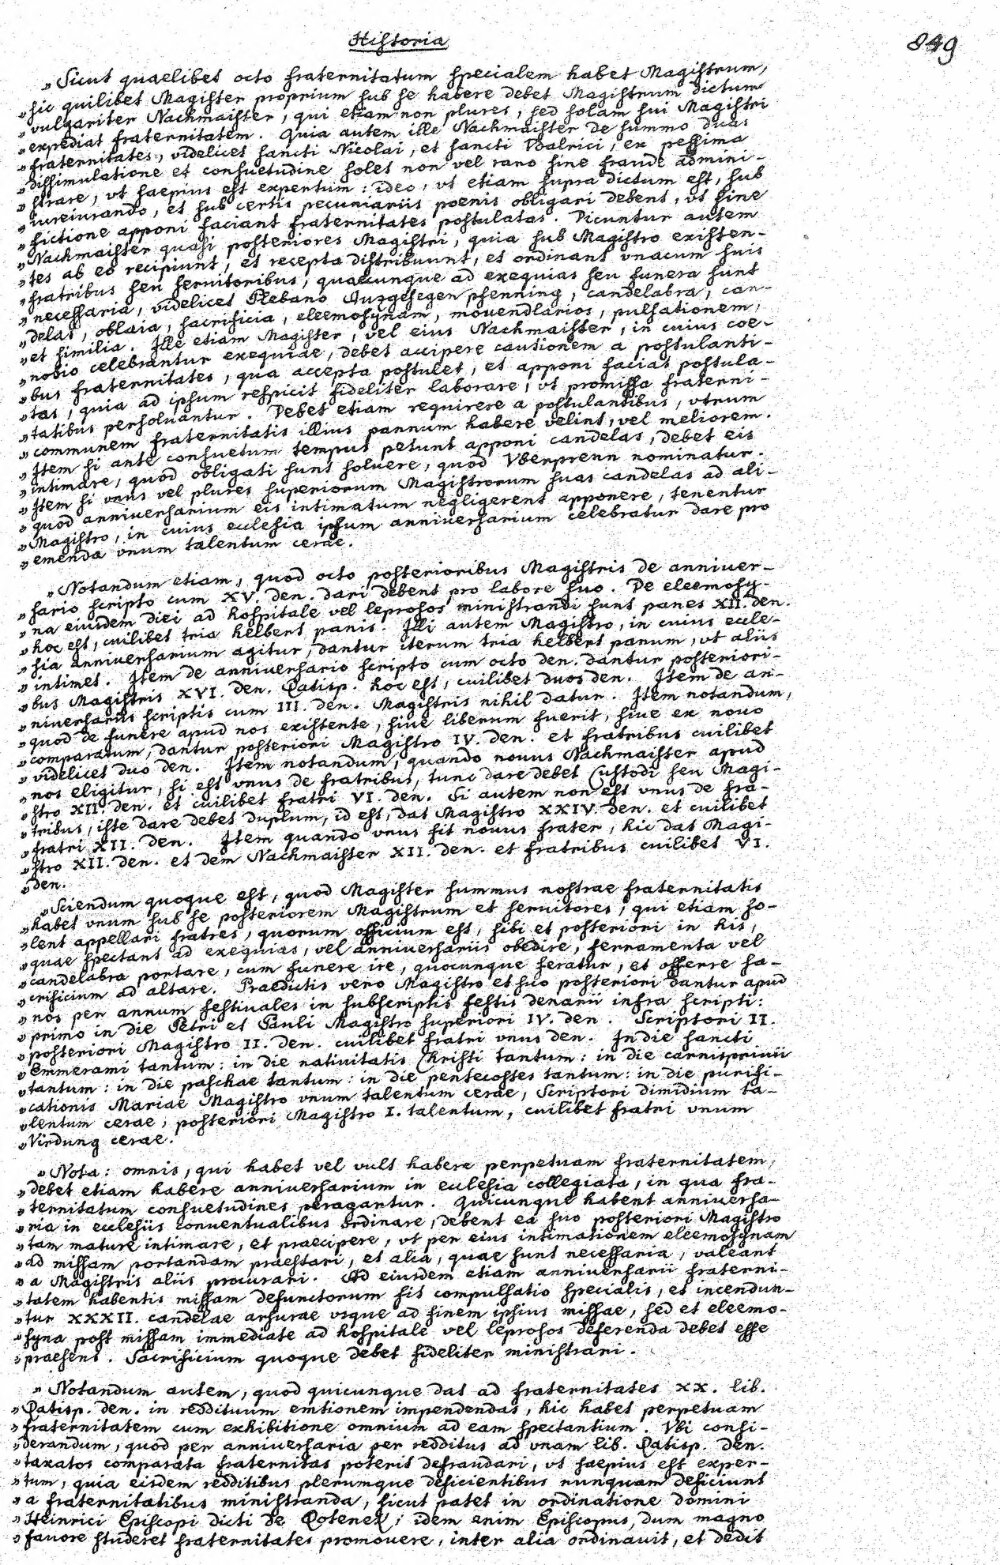 Historia
849
„Sicut quaelibet octo fraternitatum specialem habet Magistrum,
„sic quilibet Magister proprium sub se habere debet Magistrum dictum
„vulgariter Nachmaister, qui etiam non plures, sed solam sui Magistri
„expediat fraternitatem. Quia autem ille Nachmaister de summo duas
„fraternitates, videlicet sancti Nicolai, et sancti Voalrici, ex pessima
„dissimulatione et consuetudine solet non vel raro sine fraude admini-
„strare, vt saepius est expertum: ideo, vt etiam supra dictum est, sub
„iureiurando, et sub certis pecuniariis poenis obligari debent, vt sine
„fictione apponi faciant fraternitates postulatas. Dicuntur autem
„Nachmaister quasi posteriores Magistri, quia sub Magistro existen-
„tes ab eo recipiunt, et recepta distribuunt, et ordinant vnacum suis
„fratribus seu seruitoribus, quaecunque ad exequias seu funera sunt
„necessaria, videlicet Plebano Auzgesegen pfenning, candelabra, can-
„delas, oblaia, sacrificia, eleemosynam, mouendlarios, pulsationem,
„et similia. Ille etiam Magister, vel eius Nachmaister, in cuius coe-
„nobio celebrantur exequiae, debet accipere cautionem a postulanti-
„bus fraternitates, qua accepta postulet, et apponi faciat postula-
„tas, quia ad ipsum respicit fideliter laborare, vt promissa fraterni-
„tatibus persoluantur. Debet etiam requirere a postulantibus, vtrum
„communem fraternitatis illius pannum habere velint, vel meliorem.
„Item si ante consuetum tempus petunt apponi candelas, debet eis
„intimare, quod obligati sunt soluere, quod Vberprenn nominatur.
„Item si vnus vel plures superiorum Magistrorum suas candelas ad ali-
„quod anniuersarium eis intimatum negligerent apponere, tenentur
„Magistro, in cuius ecclesia ipsum anniuersarium celebratur dare pro
„emenda vnum talentum cerae.
„Notandum etiam, quod octo posterioribus Magistris de anniuer-
„sario scripto cum XV. den. dari debent pro labore suo. De eleemosy-
„na eiusdem diei ad hospitale vel leprosos ministrandi sunt panes XII. den.
„hoc est, cuilibet tria helbert panis. Illi autem Magistro, in cuius eccle-
„sia anniuersarium agitur, dantur iterum tria helbert panum, vt aliis
„intimet. Item de anniuersario scripto cum octo den. dantur posteriori-
„bus Magistris XVI. den. Ratisp. hoc est, cuilibet duos den. Item de an-
„niuersariis scriptis cum III. den. Magistris nihil datur. Item notandum,
„quod de funere apud nos existente, siue liberum fuerit, siue ex nouo
„comparatum, dantur posteriori Magistro IV. den. et fratribus cuilibet
„videlicet duo den. Item notandum, quando nouus Nachmaister apud
„nos eligitur, si est vnus de fratribus, tunc dare debet Custodi seu Magi-
„stro XII. den. et cuilibet fratri VI. den. Si autem non est vnus de fra-
„tribus, iste dare debet duplum, id est, dat Magistro XXIV. den. et cuilibet
„fratri XII. den. Item quando vnus fit nouus frater, hic dat Magi-
„stro XII. den. et dem Nachmaister XII. den. et fratribus cuilibet VI.
„den.
„Sciendum quoque est, quod Magister summus nostrae fraternitatis
„habet vnum sub se posteriorem Magistrum et seruitores, qui etiam so-
„lent appellari fratres, quorum officium est, sibi et posteriori in his,
„quae spectant ad exequias, vel anniuersariis obedire, ferramenta vel
„candelabra portare, cum funere ire, quocunque feratur, et offerre sa-
„crificium ad altare. Praedictis vero Magistro et suo posteriori dantur apud
„nos per annum festiuales in subscriptis festis denarii infra scripti:
„primo in die Petri et Pauli Magistro superiori IV. den. Scriptori II.
„posteriori Magistro II. den. cuilibet fratri vnus den. In die sancti
„Emmerami tantum: in die natiuitatis Christi tantum: in die carnispriuii
„tantum: in die paschae tantum: in die pentecostes tantum: in die purifi-
„cationis Mariae Magistro vnum talentum cerae, Scriptori dimidium ta-
„lentum cerae, posteriori Magistro I. talentum, cuilibet fratri vnum
„Virdung cerae.
„Nota: omnis, qui habet vel vult habere perpetuam fraternitatem,
„debet etiam habere anniuersarium in ecclesia collegiata, in qua fra-
„ternitatum consuetudines peragantur. Quicunque habent anniuersa-
„ria in ecclesiis conuentualibus ordinare, debent ea suo posteriori Magistro
„tam mature intimare, et praecipere, vt per eius intimationem eleemosynam
„ad missam portandam praestari, et alia, quae sunt necessaria, valeant
„a Magistris aliis procurari. Ad eiusdem etiam anniuersarii fraterni-
„tatem habentis missam defunctorum fit compulsatio specialis, et incendun-
„tur XXXII. candelae arsurae vsque ad finem ipsius missae, sed et eleemo-
„syna post missam immediate ad hospitale vel leprosos deferenda debet esse
„praesens. Sacrificium quoque debet fideliter ministrari.
„Notandum autem, quod quicunque dat ad fraternitates XX. lib.
„Ratisp. den. in reddituum emtionem impendendas, hic habet perpetuam
„fraternitatem cum exhibitione omnium ad eam spectantium. Vbi consi-
„derandum, quod per anniuersaria per redditus ad vnam lib. Ratisp. den.
„taxatos comparata fraternitas poterit defraudari, vt saepius est exper-
„tum, quia eisdem redditibus plerumque deficientibus nunquam deficiunt
„a fraternitatibus ministranda, sicut patet in ordinatione domini
„Heinrici Episcopi dicti de Rotenek; idem enim Episcopus, dum magno
„fauore studeret fraternitates promouere, inter alia ordinauit, et dedit